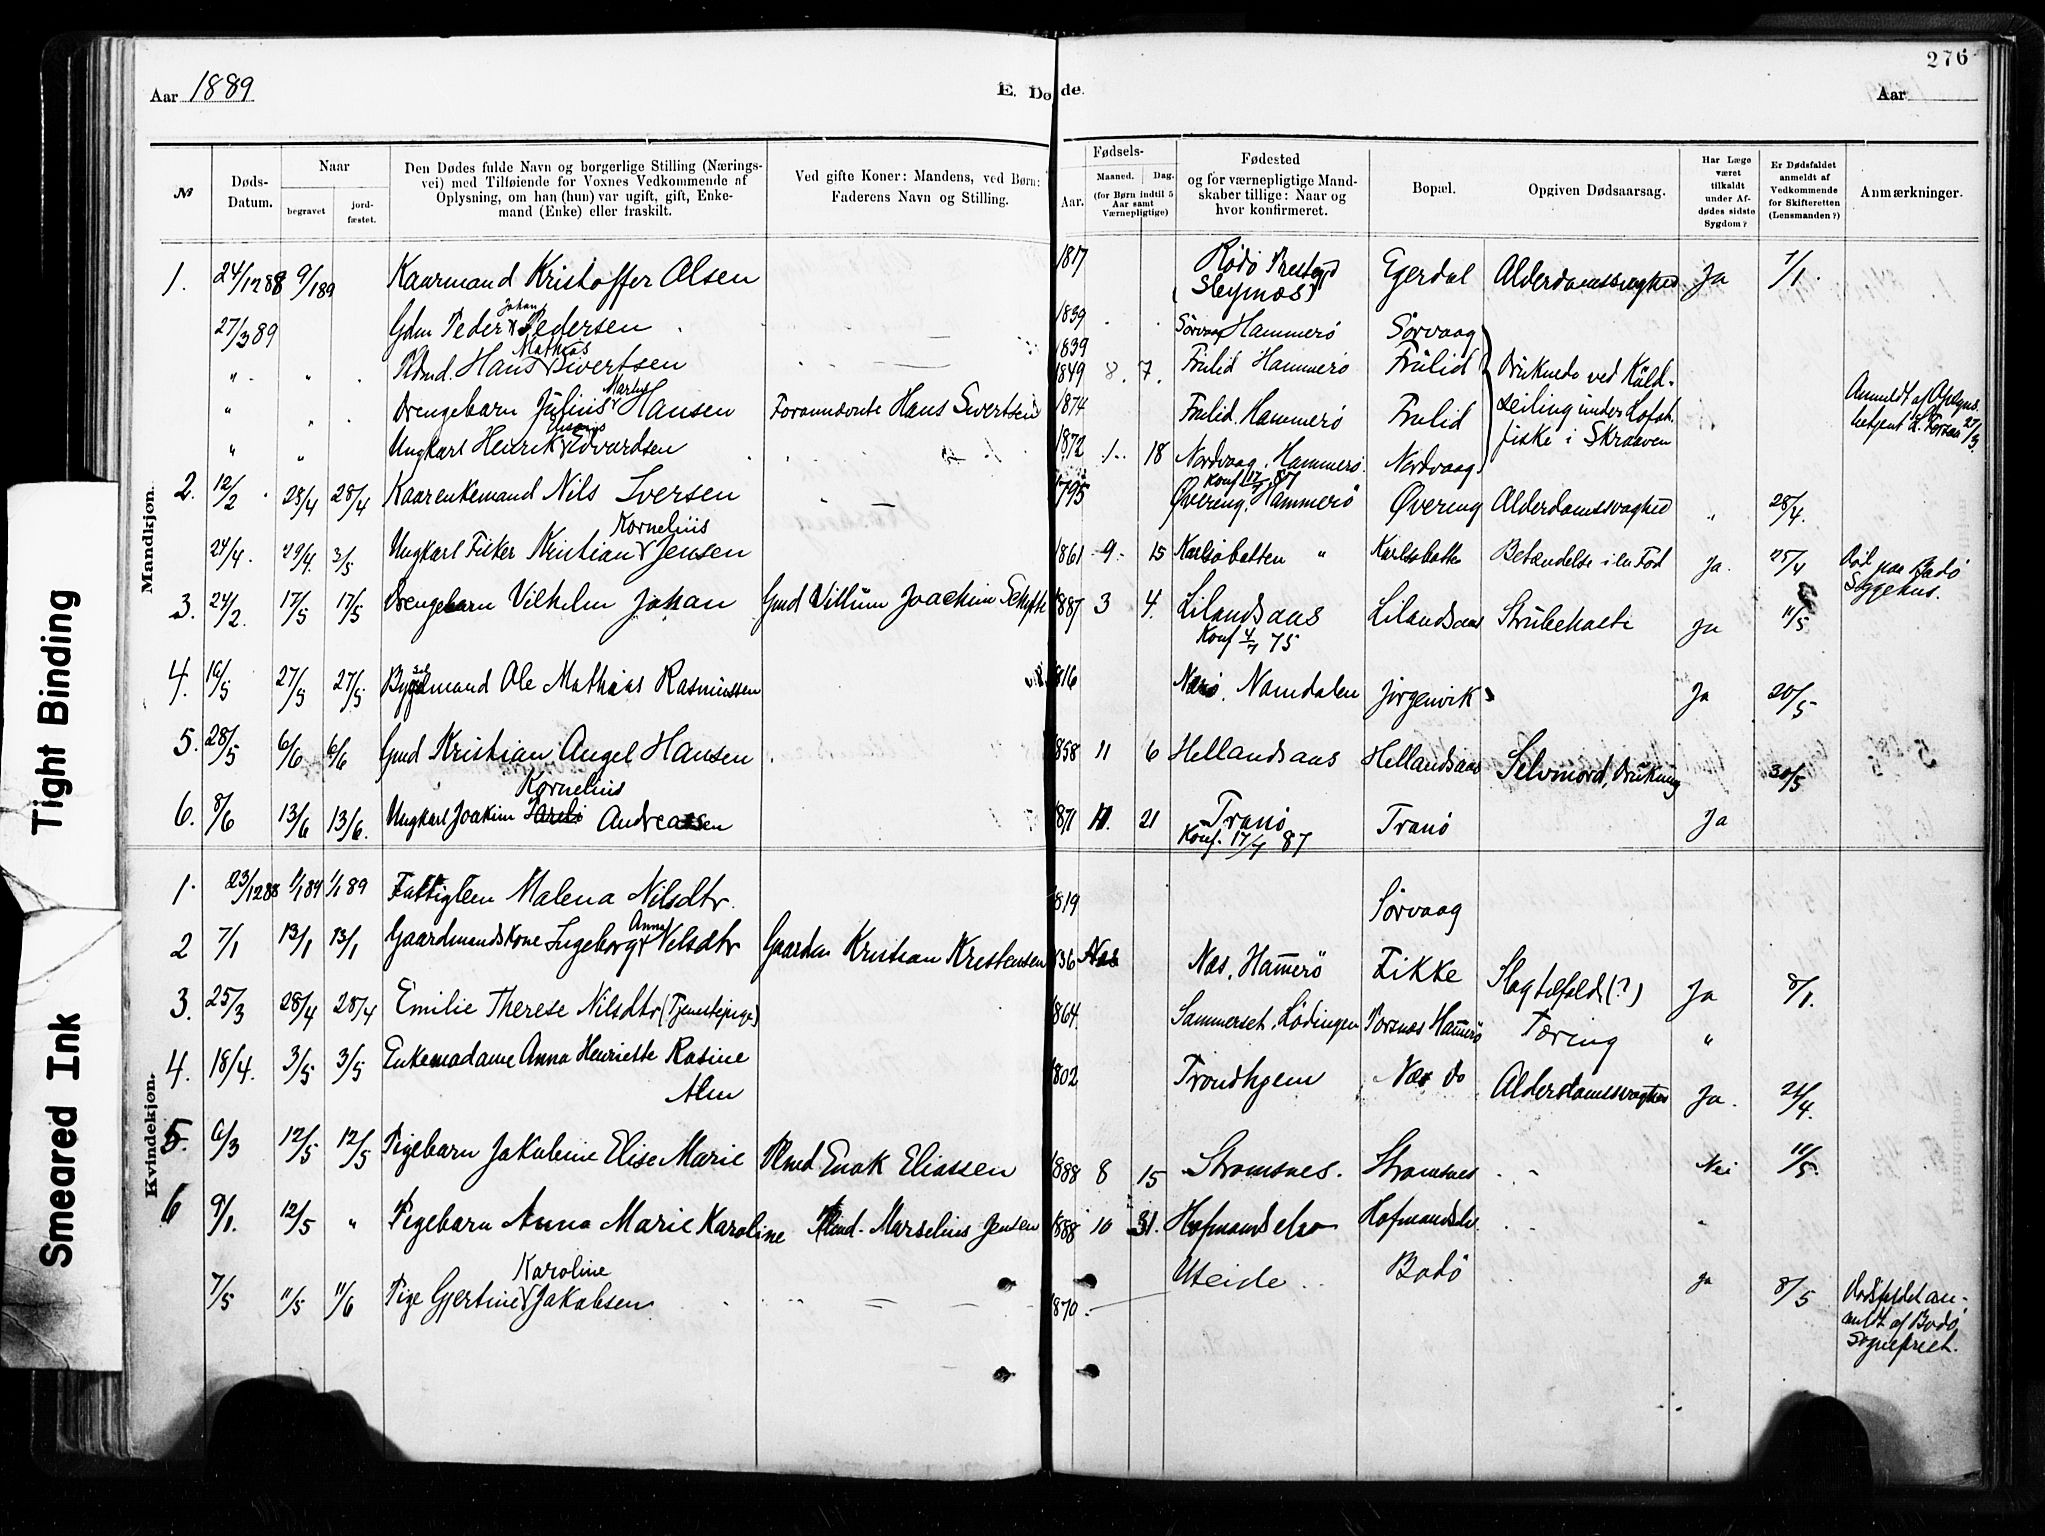 276
Aar 1889
E. Døde.
Aar
№
Døds-Datum.
Naar
begravet
jord-fæstet.
Den Dødes fulde Navn og borgerlige Stilling (Nærings-
vei) med Tilføiende for Voxnes Vedkommende af
Oplysning, om han (hun) var ugift, gift, Enke-
mand (Enke) eller fraskilt.
Ved gifte Koner: Mandens, ved Børn:
Faderens Navn og Stilling.
Fødsels-
Aar.
Maaned. Dag.
(for Børn indtil 5
Aar samt
Værnepligtige)
Fødested
og for værnepligtige Mand-
skaber tillige: Naar og
hvor konfirmeret.
Bopæl.
Opgiven Dødsaarsag.
Har Læge
været
tilkaldt
under Af-
dødes sidste
Sygdom?
Er Dødsfaldet
anmeldt af
Vedkommende
for Skifteretten
(Lensmanden?)
Anmærkninger.
Mandkjøn.
1. 24/12 88 9/1 89 Kaarmand Kristoffer Olsen 1817 Rödö Egerdal Alderdomssvaghed Ja 1/1.
27/3 89 Gdm Peder Johan Pedersen 1839 Sörvaag Hammerö Sörvaag
" Hans Mathias Sivertsen 1839 Frülid Hammerö Frülid
" Drengebarn Jülius Martin Hansen Forannævnte Hans Sivertsen 1874 8. 7. Frülid Hammerö Frülid
" Ungkarl Henrik Edvardsen 1872 1 18 Nordvaag, Hammerö Konf 87 Nordvaag
Druknede ved Küld-
seiling under Lofot-
fiske i Skraaven
Anmeldt af Opsyns-
betjent 27/3
2. 12/2 28/4 28/4 Kaarenkemand Nils Iversen 1795 Øvereng, Hammerö Øvereng Alderdomssvaghed " 28/4.
24/4. 29/4. 3/5 Ungkarl Fisker Kristian Kornelius Jensen 1861 9 15 Karlsöbotten " Karlsöbotten Betændelse i en Fod Ja. 25/4 Död paa Bodö
Sygehus.
3. 24/2. 17/5 17/5 Drengebarn Vilhelm Johan Gmd Villum Joachim 1887 3 4. Lilandsaas
Konf 4/7 75
Lilandsaas Strübehoste Ja 11/5
4. 16/5 27/5 27/5 Bygselmand Ole Mathias Rasmussen 1816 Nærö, Namdalen Jörgenvik Ja 20/5
5. 28/5 6/6 6/6 Gmd Kristian Angel Hansen 1858 11 6 Hellandsaas Hellandsaas Selvmord, Drukning 30/5
6. 8/6 13/6 13/6. Ungkarl Joakim Kornelius Andreassen 1871 11. 21 Tranö
Konf. 17/7 87
Tranö Ja
Kvindekjøn.
1. 23/12 88 1/1 89 1/1 89 Fattiglem Malena Nilsdtr. 1819 Sörvaag
2 7/1 13/1 13/1 Gaardmandskone Ingeborg Anna Nilsdtr Gaardm Kristian Kristensen 1836 Næs Næs, Hammerö Fikke Slagtilfælde(?) Ja 8/1.
3. 25/3 28/4 28/4 Emilie Therese Nilsdtr (Tjenestepige) 1864 Sammerset, Lödingen Hamerö Tæring "
4. 18/4. 3/5 3/5 Enkemadame Anna Henriette Rasine
Alm 1802 Trondhjem Næs do Alderdomssvaghed Ja. 21/4.
5. 6/3 12/5 12/5 Pigebarn Jakobine Elise Marie Enok Eliassen 1888 8 15 Strömsnes. Strömsnes Nei 11/5.
6 9/1. 12/5 " Pigebarn Anna Marie Karoline Marselius Jensen 1888 10 31. Hofmandselv Hofmandselv.
7/5 11/5 11/6 Pige Gjertine Karoline Jakobsen 1870. Uteide Bodö Ja 8/5 Dödsfaldet an-
meldt af Bodö
Sogneprest.
Tight Binding
Smeared Ink